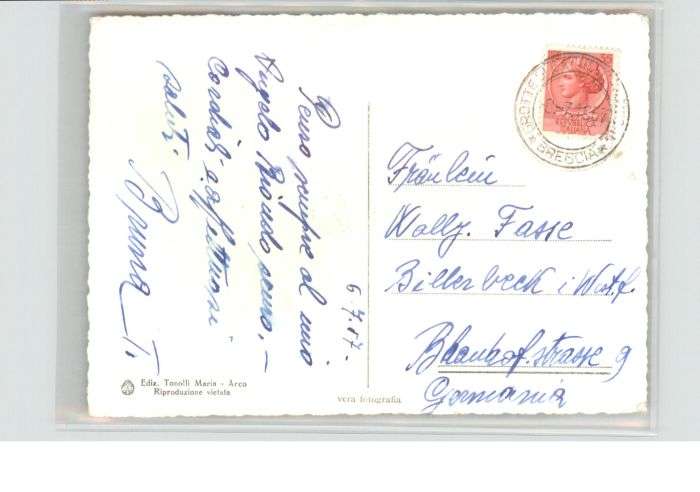 Penso sempre al mio
Angelo Biondo
Cordiali affettuosi
saluti
Bruna T.
6.7.57.
Fräulein
Wally. Fasse
Billerbeck i Westf.
Bhanhof.strasse 9
Germania
BRESCIA
Ediz. Tonolli Maria - Arco
Riproduzione vietata
vera fotografia